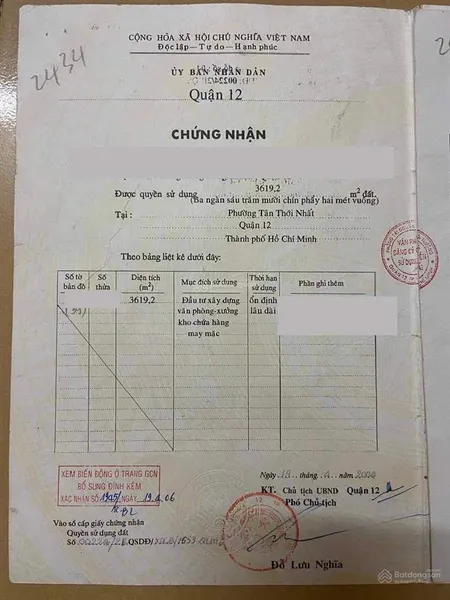 2434
CỘNG HÒA XÃ HỘI CHỦ NGHĨA VIỆT NAM
Độc lập - Tự do - Hạnh phúc
ỦY BAN NHÂN DÂN
Quận 12
CHỨNG NHẬN
Được quyền sử dụng 3619,2 m² đất.
(Ba ngàn sáu trăm mười chín phẩy hai mét vuông)
Tại : Phường Tân Thới Nhất
Quận 12
Thành phố Hồ Chí Minh
Theo bảng liệt kê dưới đây:
Số tờ bản đồ
Số thửa
Diện tích (m²)
Mục đích sử dụng
Thời hạn sử dụng
Phần ghi thêm
3619,2
Đầu tư xây dựng
văn phòng-xưởng
kho chứa hàng
may mặc
ổn định
lâu dài
XEM BIẾN ĐỘNG Ở TRANG GCN
BỔ SUNG ĐÍNH KÈM
XÁC NHẬN SỐ NGÀY 19.4.06
Ngày tháng năm
KT. Chủ tịch UBND Quận 12
Phó Chủ tịch
Vào sổ cấp giấy chứng nhận
Quyền sử dụng đất
Số QSDĐ/
Đỗ Lưu Nghĩa
Batdongsan